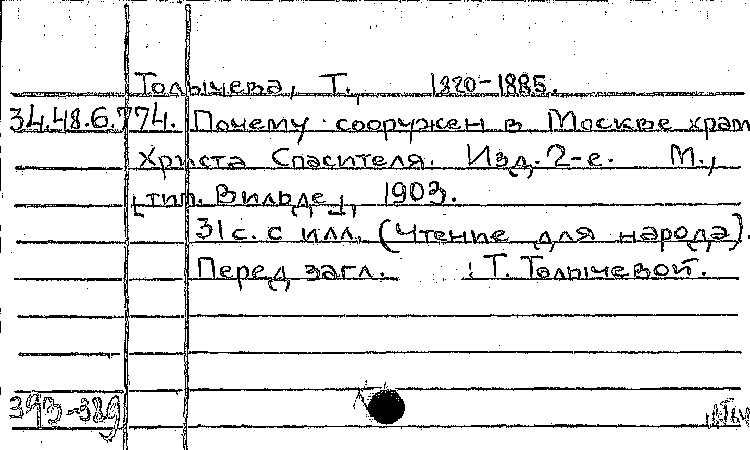 Толычева, Т., 1820-1885.
34.48.6.774. Почему сооружен в Москве храм
Христа Спасителя. Изд. 2-е. М.,
[тип. Вильде], 1903.
31 с. с илл. (Чтение для народа).
Перед загл. : Т. Толычевой.
393-989